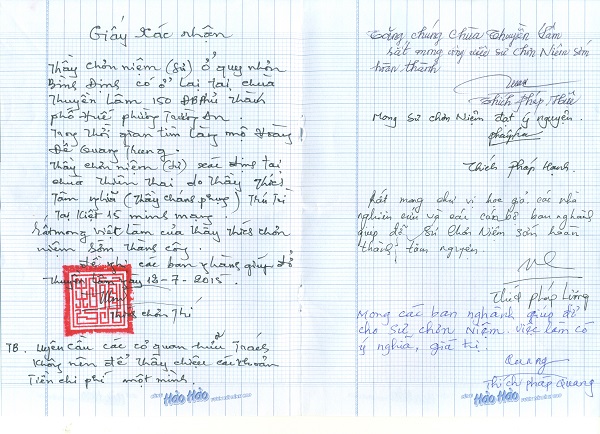 Giấy Xác nhận
Thầy chơn niệm (sư) ở quy nhơn
Bình Định có ở lại tại chùa
Thuyền Lâm 150 ĐBPhủ Thành
phố Huế phường Trường An.
Trong thời gian tìm lăng mộ Hoàng
Đế Quang Trung.
Thầy chơn niệm (sư) xác định tại
chùa Thiền Thai do Thầy Thích
Tâm nghĩa (Thầy Chánh phụng) Trú Trì
Tay Kiệt 15 minh mạng.
Rất mong việc làm của Thầy Thích chơn
niệm sớm Thành công.
đề nghị các ban nghành giúp đỡ
Thuyền Lâm ngày 13-7-2015.
Thích chơn Trí
TB. yêu cầu các cơ quan hữu Trách
không nên để Thầy chịu các khoản
Tiền chi phí một mình.
Hảo Hảo
Tăng chúng Chùa Thuyền Lâm
rất mong công việc sư Chơn Niệm sớm
hoàn thành
Thích Pháp Huệ
Mong Sư chơn Niệm đạt ý nguyện.
Thích Pháp Hạnh.
Rất mong chư vị học giả, các nhà
nghiên cứu và các cán bộ ban nghành
giúp đỡ Sư Chơn Niệm sớm hoàn
thành tâm nguyện.
Thích Pháp
Mong các ban nghành giúp đỡ
cho Sư chơn Niệm. việc làm có
ý nghĩa, giá trị.
Quang
Thích Pháp Quang
Hảo Hảo